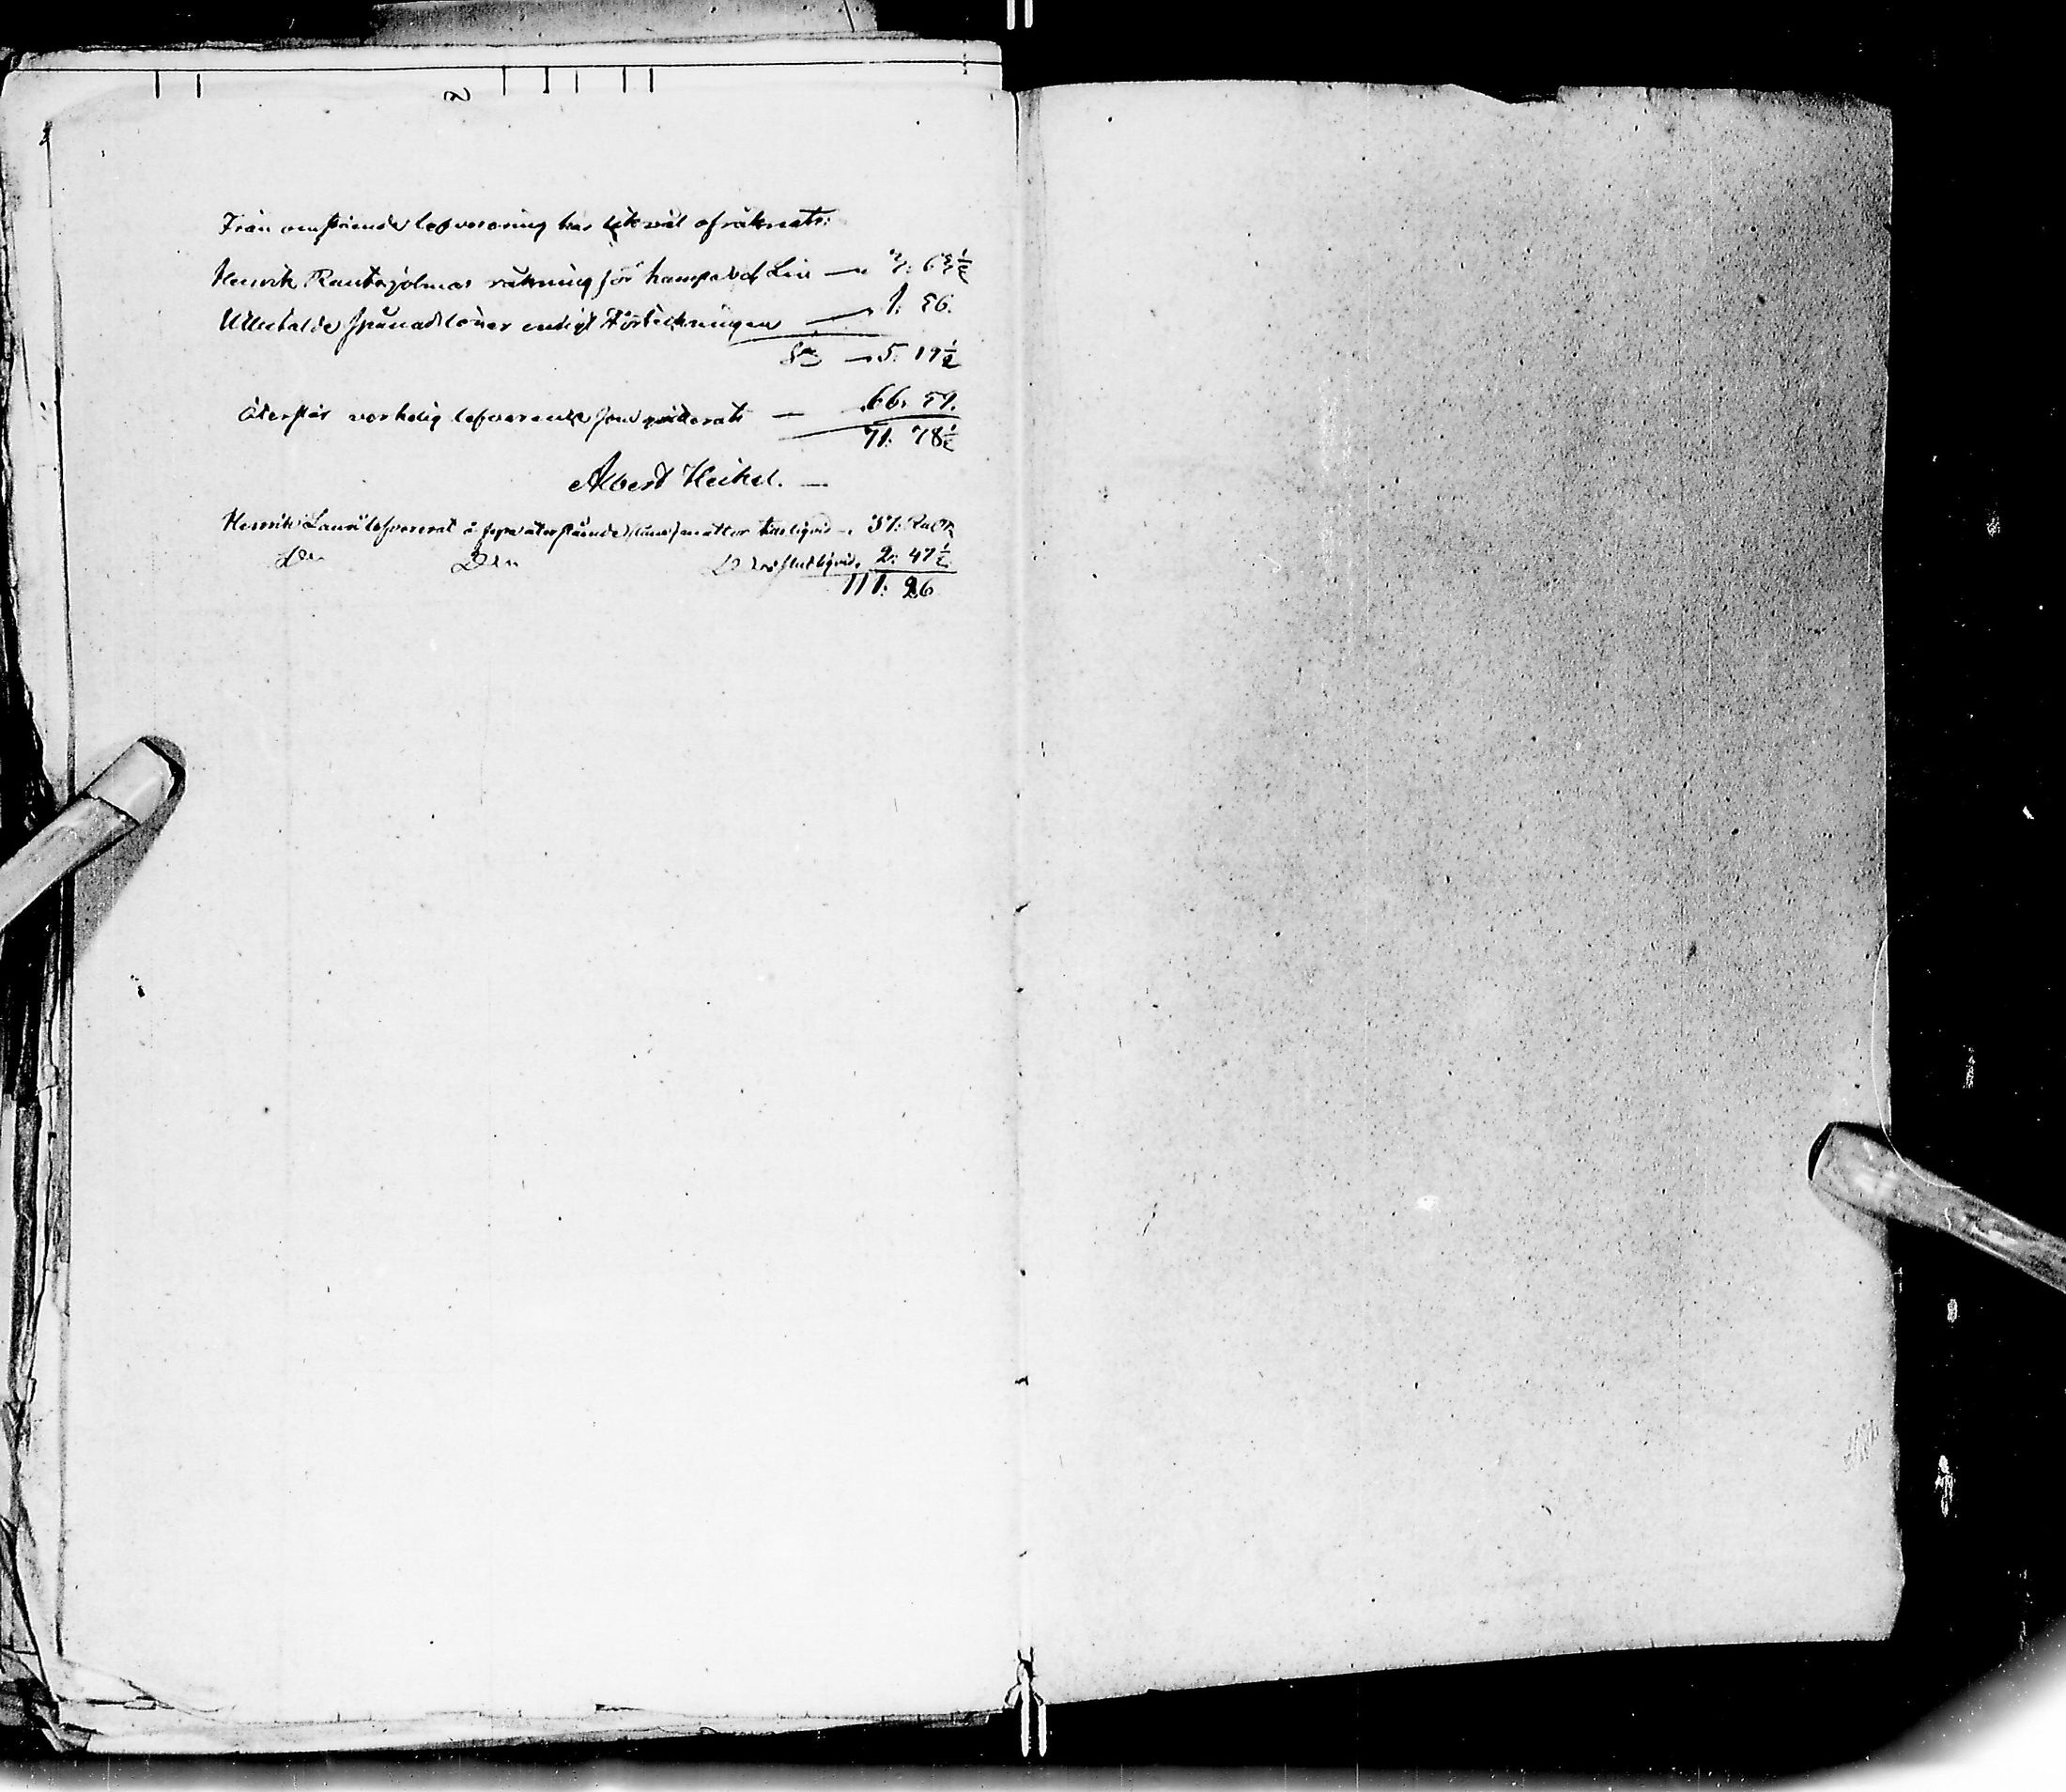 Från omstående lefverering har likväl afräknats:
Henrik Rautajolmas räkning för hampa och Lin — 3: 63½
Utbetalde spånadslöner enligt Förteckningen — 1: 56.
S:a — 5: 19½
Återstår verkelig leverence som qvitterats — 66: 59.
71: 78½
Albert Heikel. —
Henrik Lauri lefvererat återstående mattor liqvid — 37:
D:o D:o D:o slutliqvid. 2: 47½
111: 26